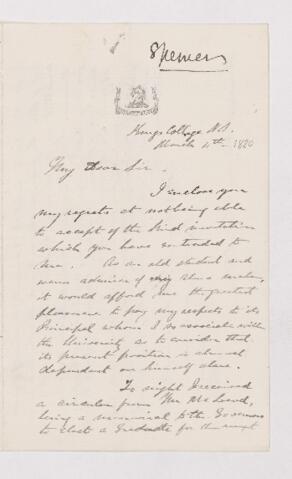 Kings College N.S.
March 4th 1880
My Dear Sir.
I inclose you
my regrets at not being able
to accept of the kind invitation
which you have extended to
me. As an old student and
warm admirer of my Alma Mater,
it would afford me the greatest
pleasure to pay my respects to its
Principal whom I so associate with
the University as to consider that
its present position is almost
dependent on himself alone.
To night I received
a circular from Mr McLeod,
being a memorial to the Governors
to elect a Graduate for the